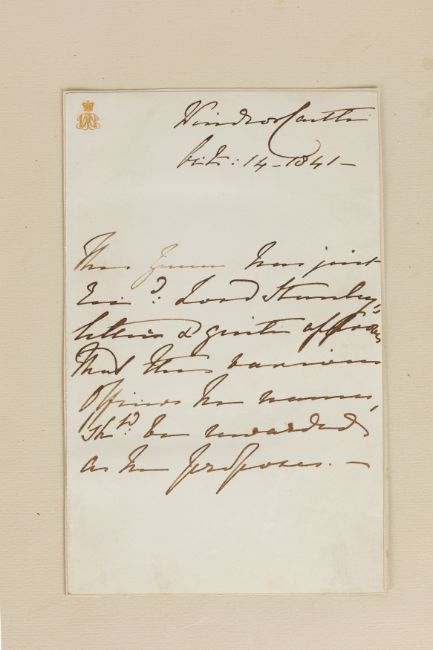 Windsor Castle
Oct: 14 - 1841 -
The Queen has just
Recd: Lord Stanley's
letter & quite approves
that the various
Officers he names,
shld: be rewarded
as he proposes. -